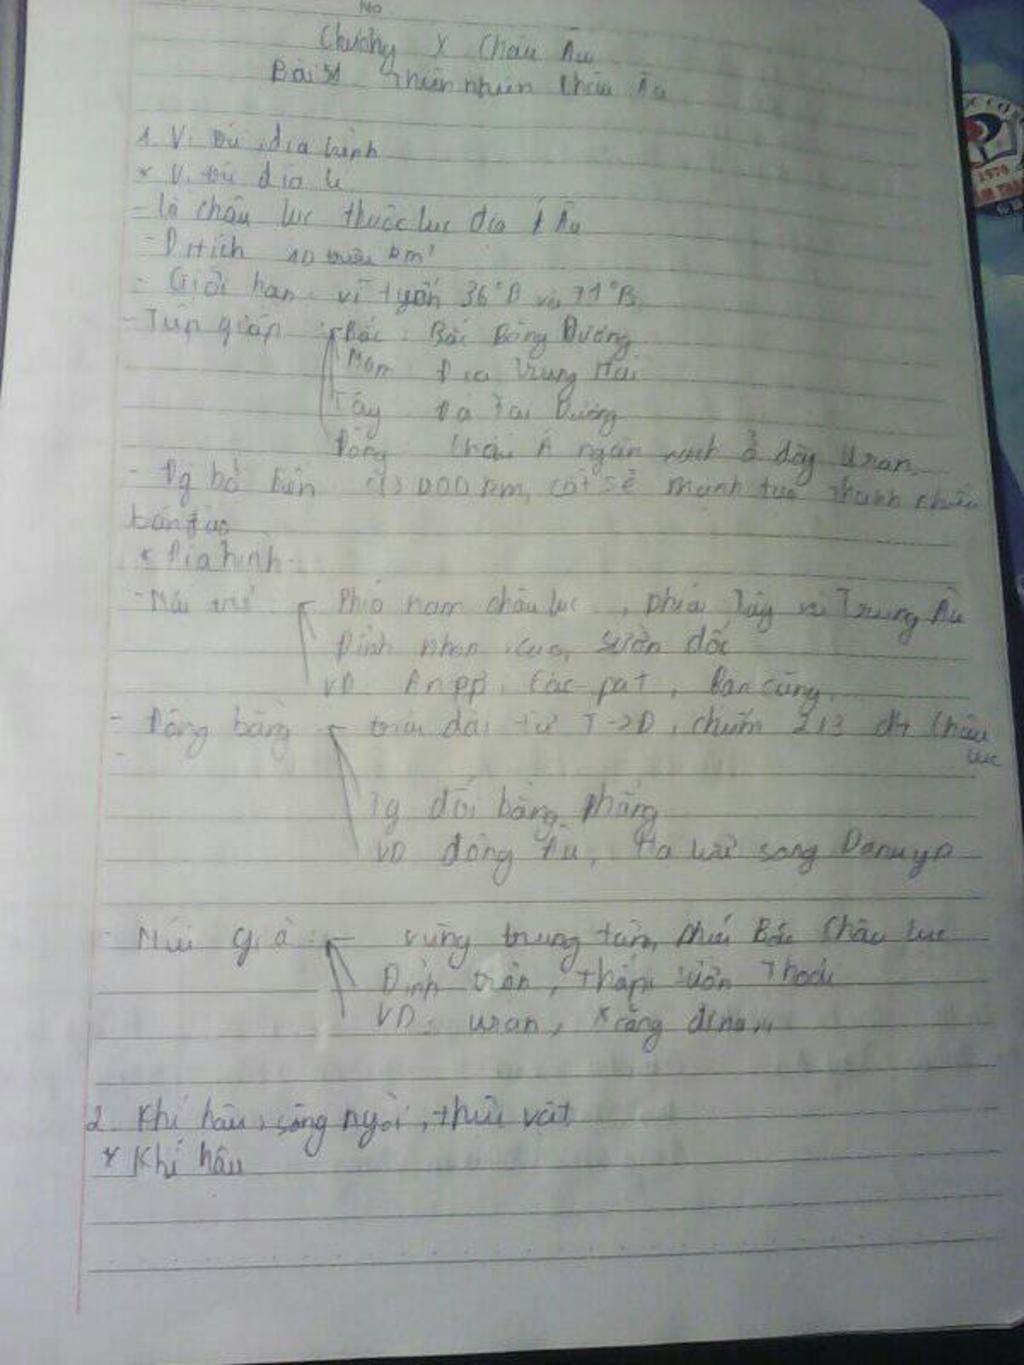 No
Chương X Châu Âu
Bài 51 Thiên nhiên Châu Âu
1. Vị trí, địa hình
* Vị trí địa lí
- là châu lục thuộc lục địa Á Âu
- D.tích 10 triệu km²
- Giới hạn: vĩ tuyến 36°B và 71°B.
- Tiếp giáp: Bắc: Bắc Băng Dương
Nam Địa Trung Hải
Tây Đại Tây Dương
Đông Châu Á ngăn cách ở dãy Uran
- Đg bờ biển 43000 km, cắt sẻ mạnh tạo thành nhiều
bán đảo
* Địa hình
- Núi trẻ Phía nam châu lục, phía Tây và Trung Âu
Đỉnh nhọn, cao, sườn dốc
VD An pơ, Các pat, Ban căng
- Đồng bằng trải dài từ T->Đ, chiếm 2/3 dt Châu
lục
Tg đối bằng phẳng
VD đông Âu, Hạ lưu sông Đanuyp
- Núi già vùng trung tâm, phía Bắc Châu lục
Đỉnh tròn, thấp, sườn Thoải
VD: uran, Xcăng đina
2. Khí hậu, sông ngòi, thực vật
* Khí hậu
1976